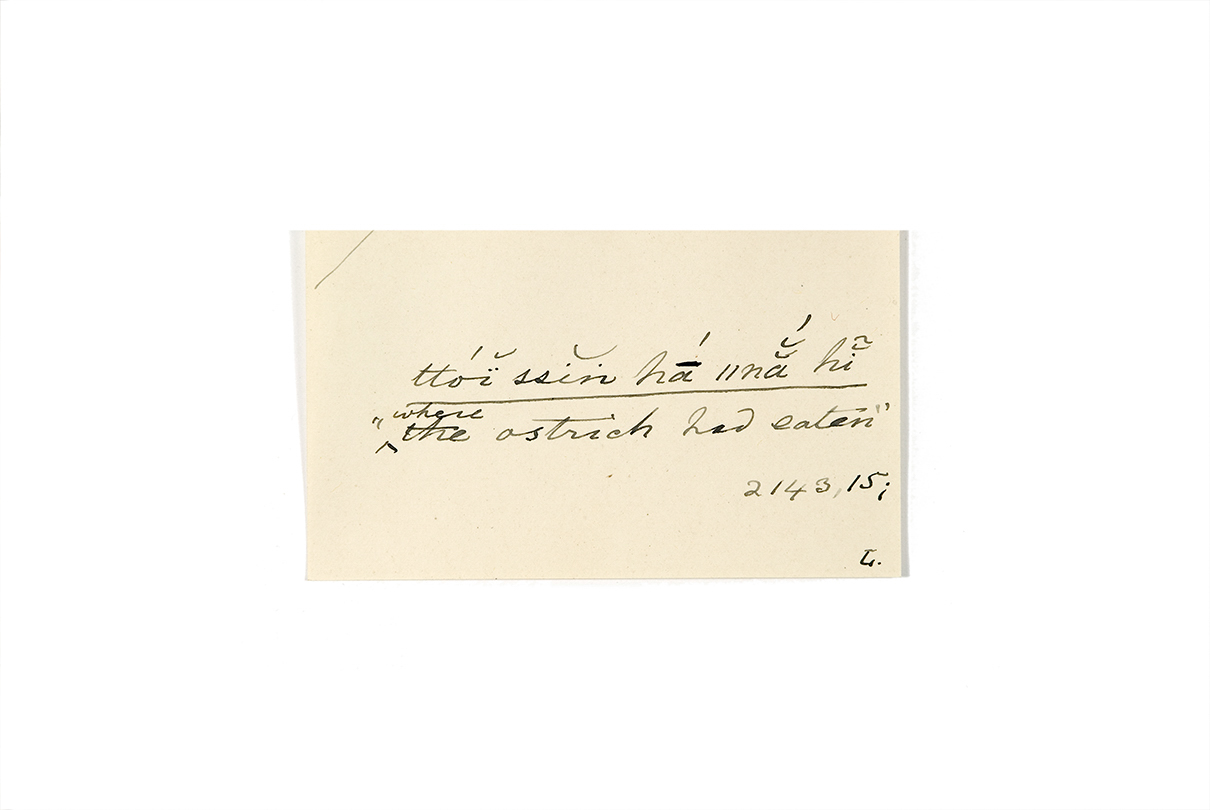 ttóı̆̈ ssĭn hā́ ǁnă̆́ hı̆̃
"where the ostrich had eaten"
2143,15;
L.